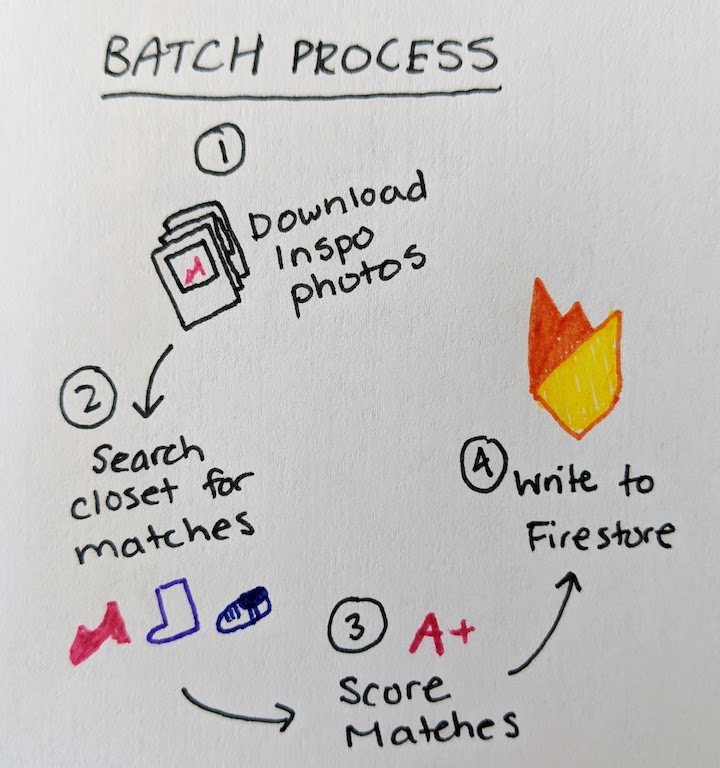 BATCH PROCESS
1
Download
Inspo
photos
2
Search
closet for
matches
3
A+
Score
Matches
4
Write to
Firestore